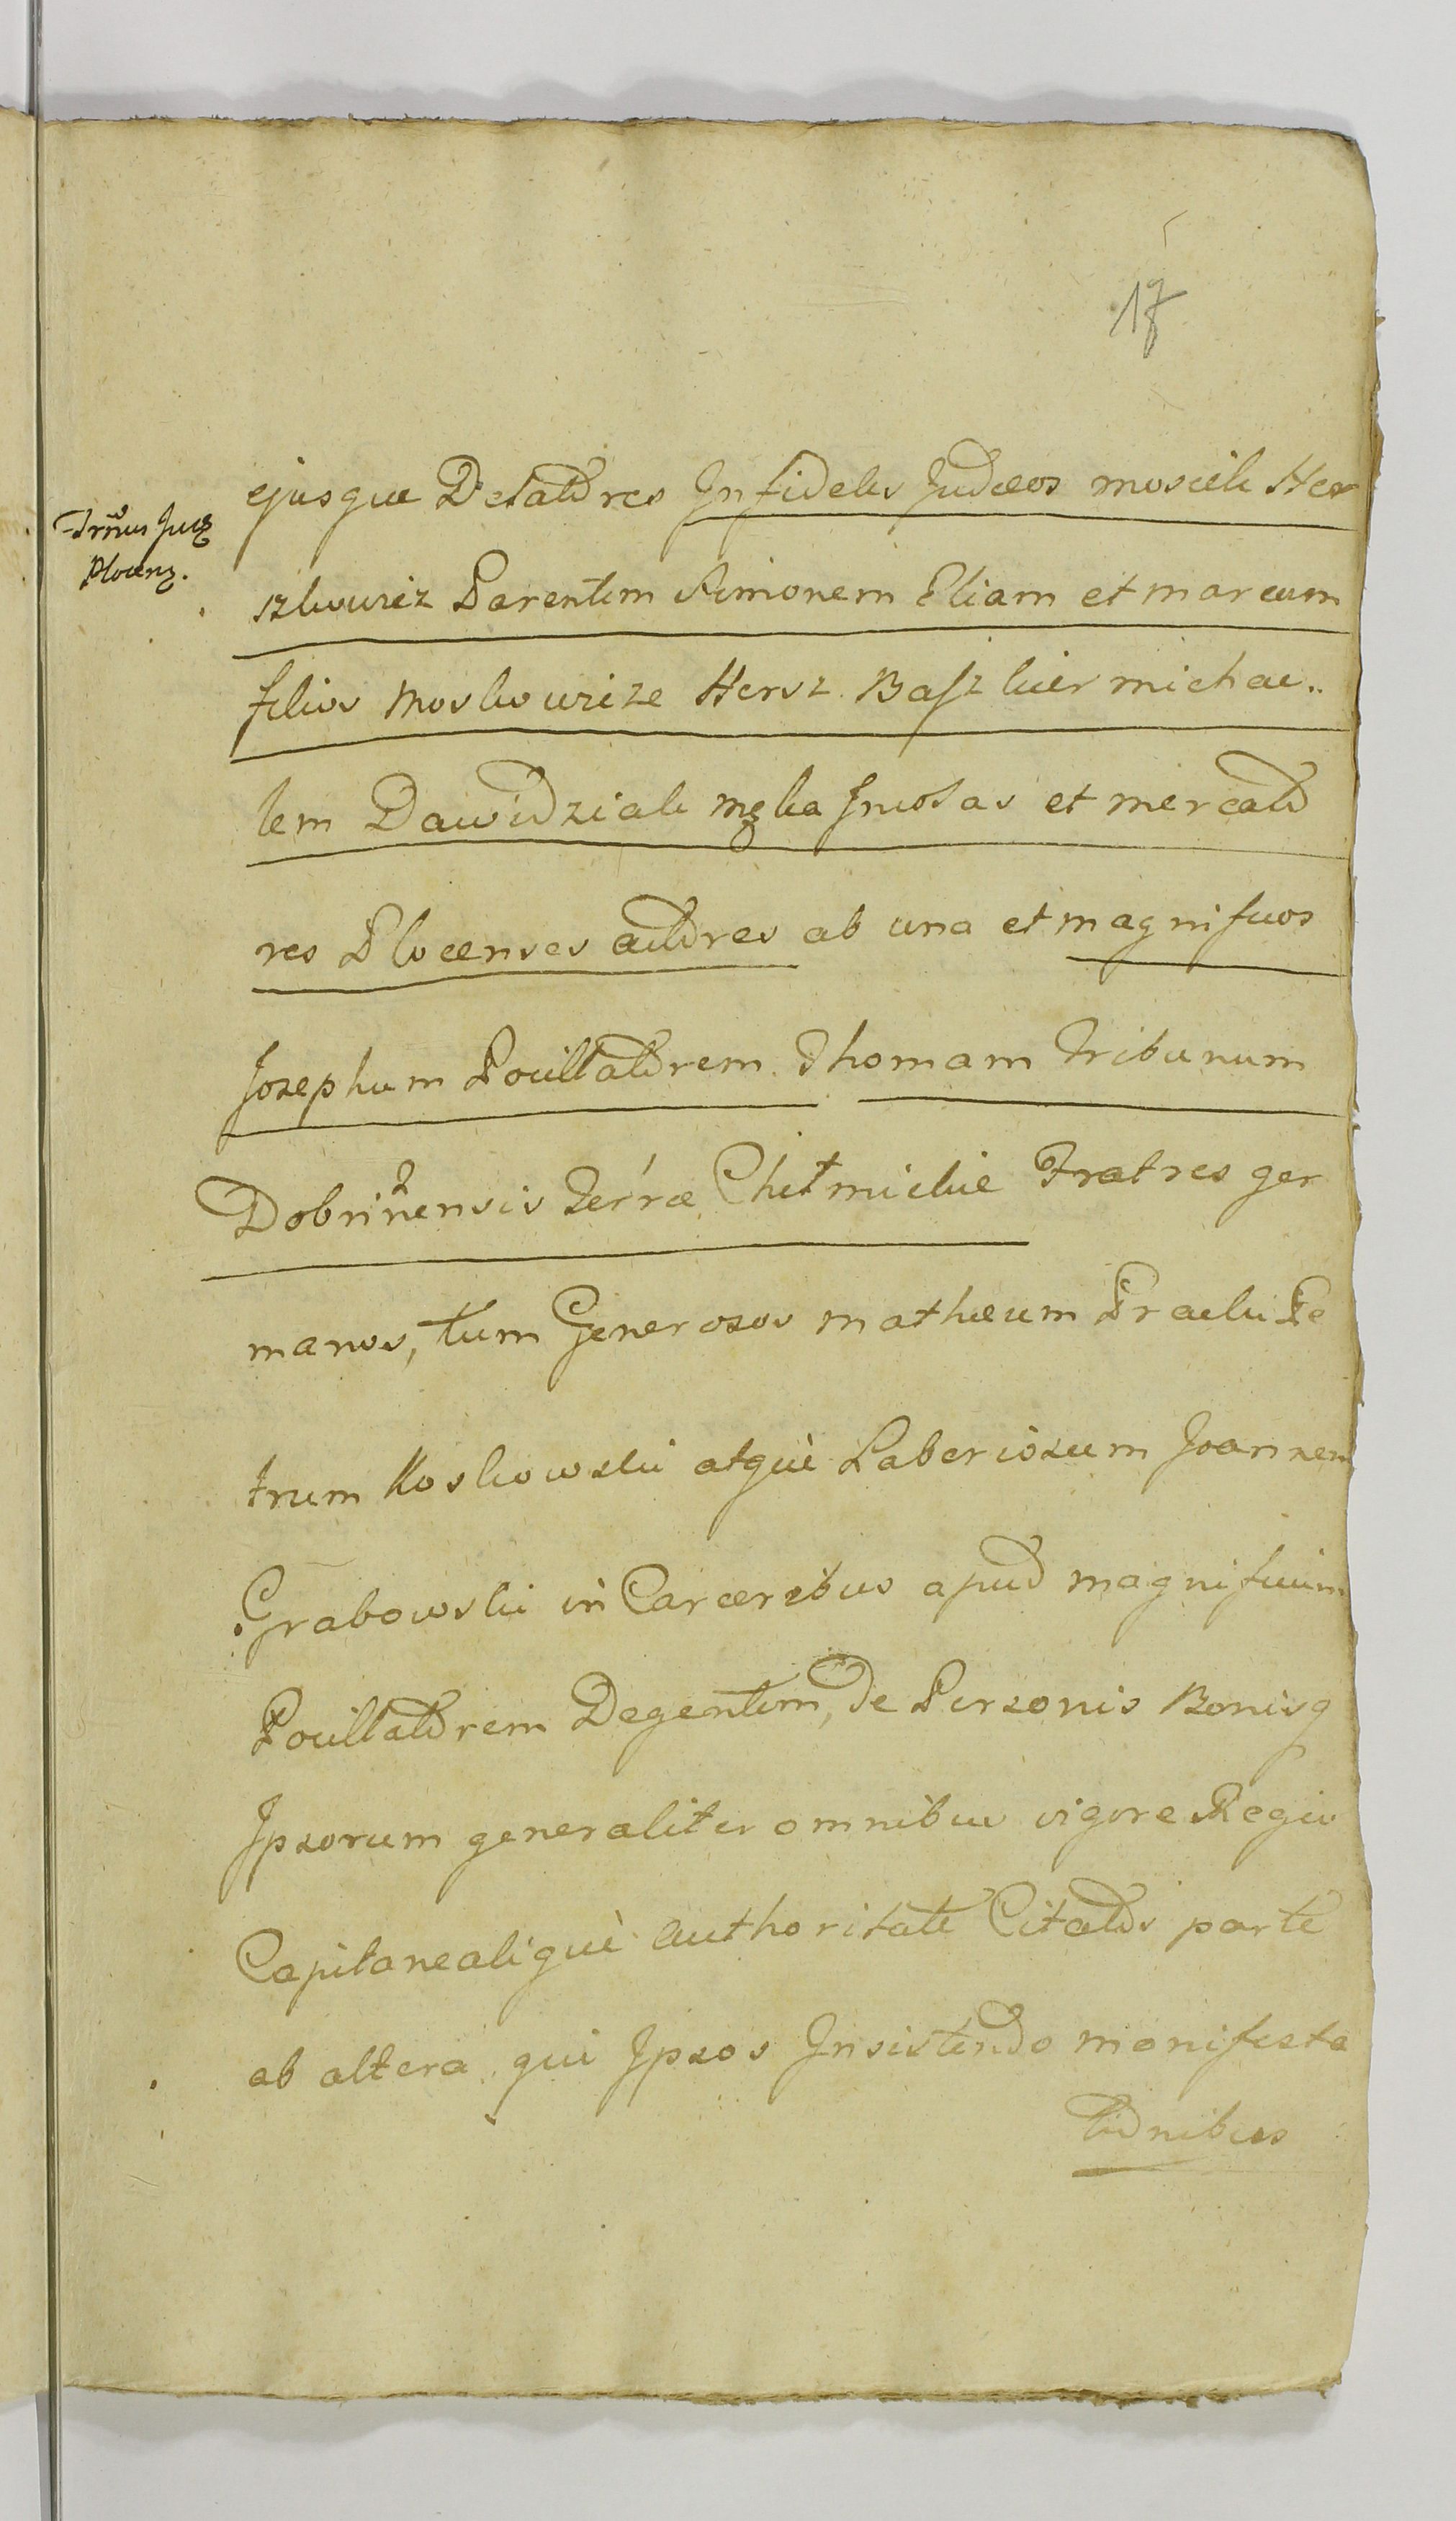 17
ejusque Delatores Infideles Judæos mosiek Her
szkowicz Parentem Simonem Eliam et marcum
filios Moskowicze Hersz Baszkier michae..
lem Dawidziak Incolas et mercato
res Plocenses actores ab una et magnificos
Josephum Pocillatorem Thomam Tribunum
Dobrinensis Terræ Chełmickie Fratres ger
manos, tum Generosos mathæum Pracki Pe
trum Koskowski atquè Laboriosum Joannem
Grabowski in Carceribus apud magnificum
Pocillatorem Degentem, de Personis Bonisq
Ipsorum generaliter omnibus vigore Regio
Capitanealiquè Authoritate Citatos parte
ab altera qui Ipsos Insistendo manifesta
tionibus